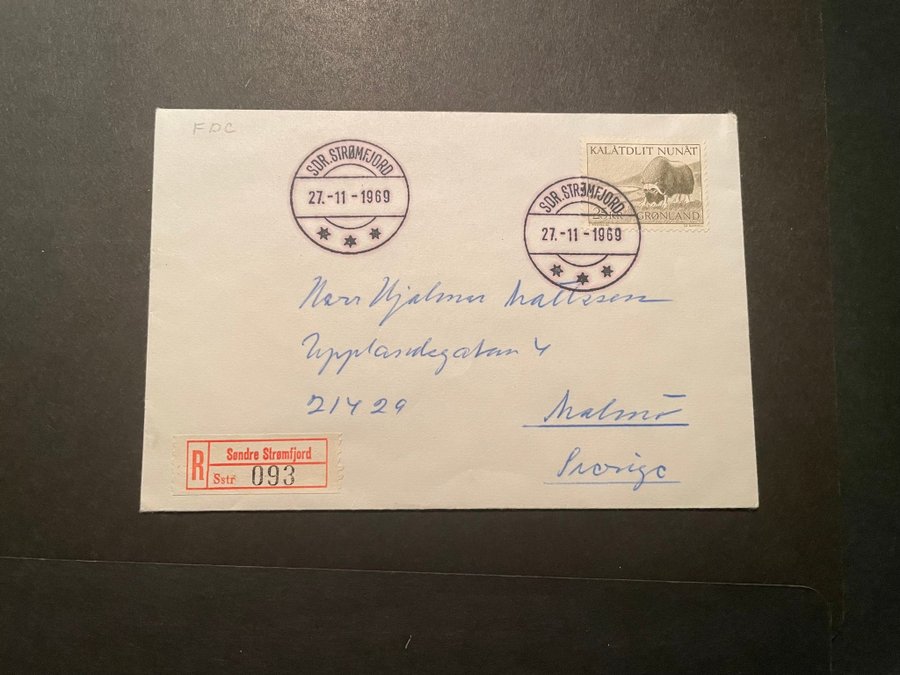 FDC
SDR. STRØMFJORD
27.-11-1969
KALÂTDLIT NUNÂT
25 KR GRØNLAND
SDR. STRØMFJORD
27.-11-1969
Herr Hjalmar Mattsson
Upplandsgatan 4
214 29 Malmö
Sverige
R Søndre Strømfjord
Sstr 093